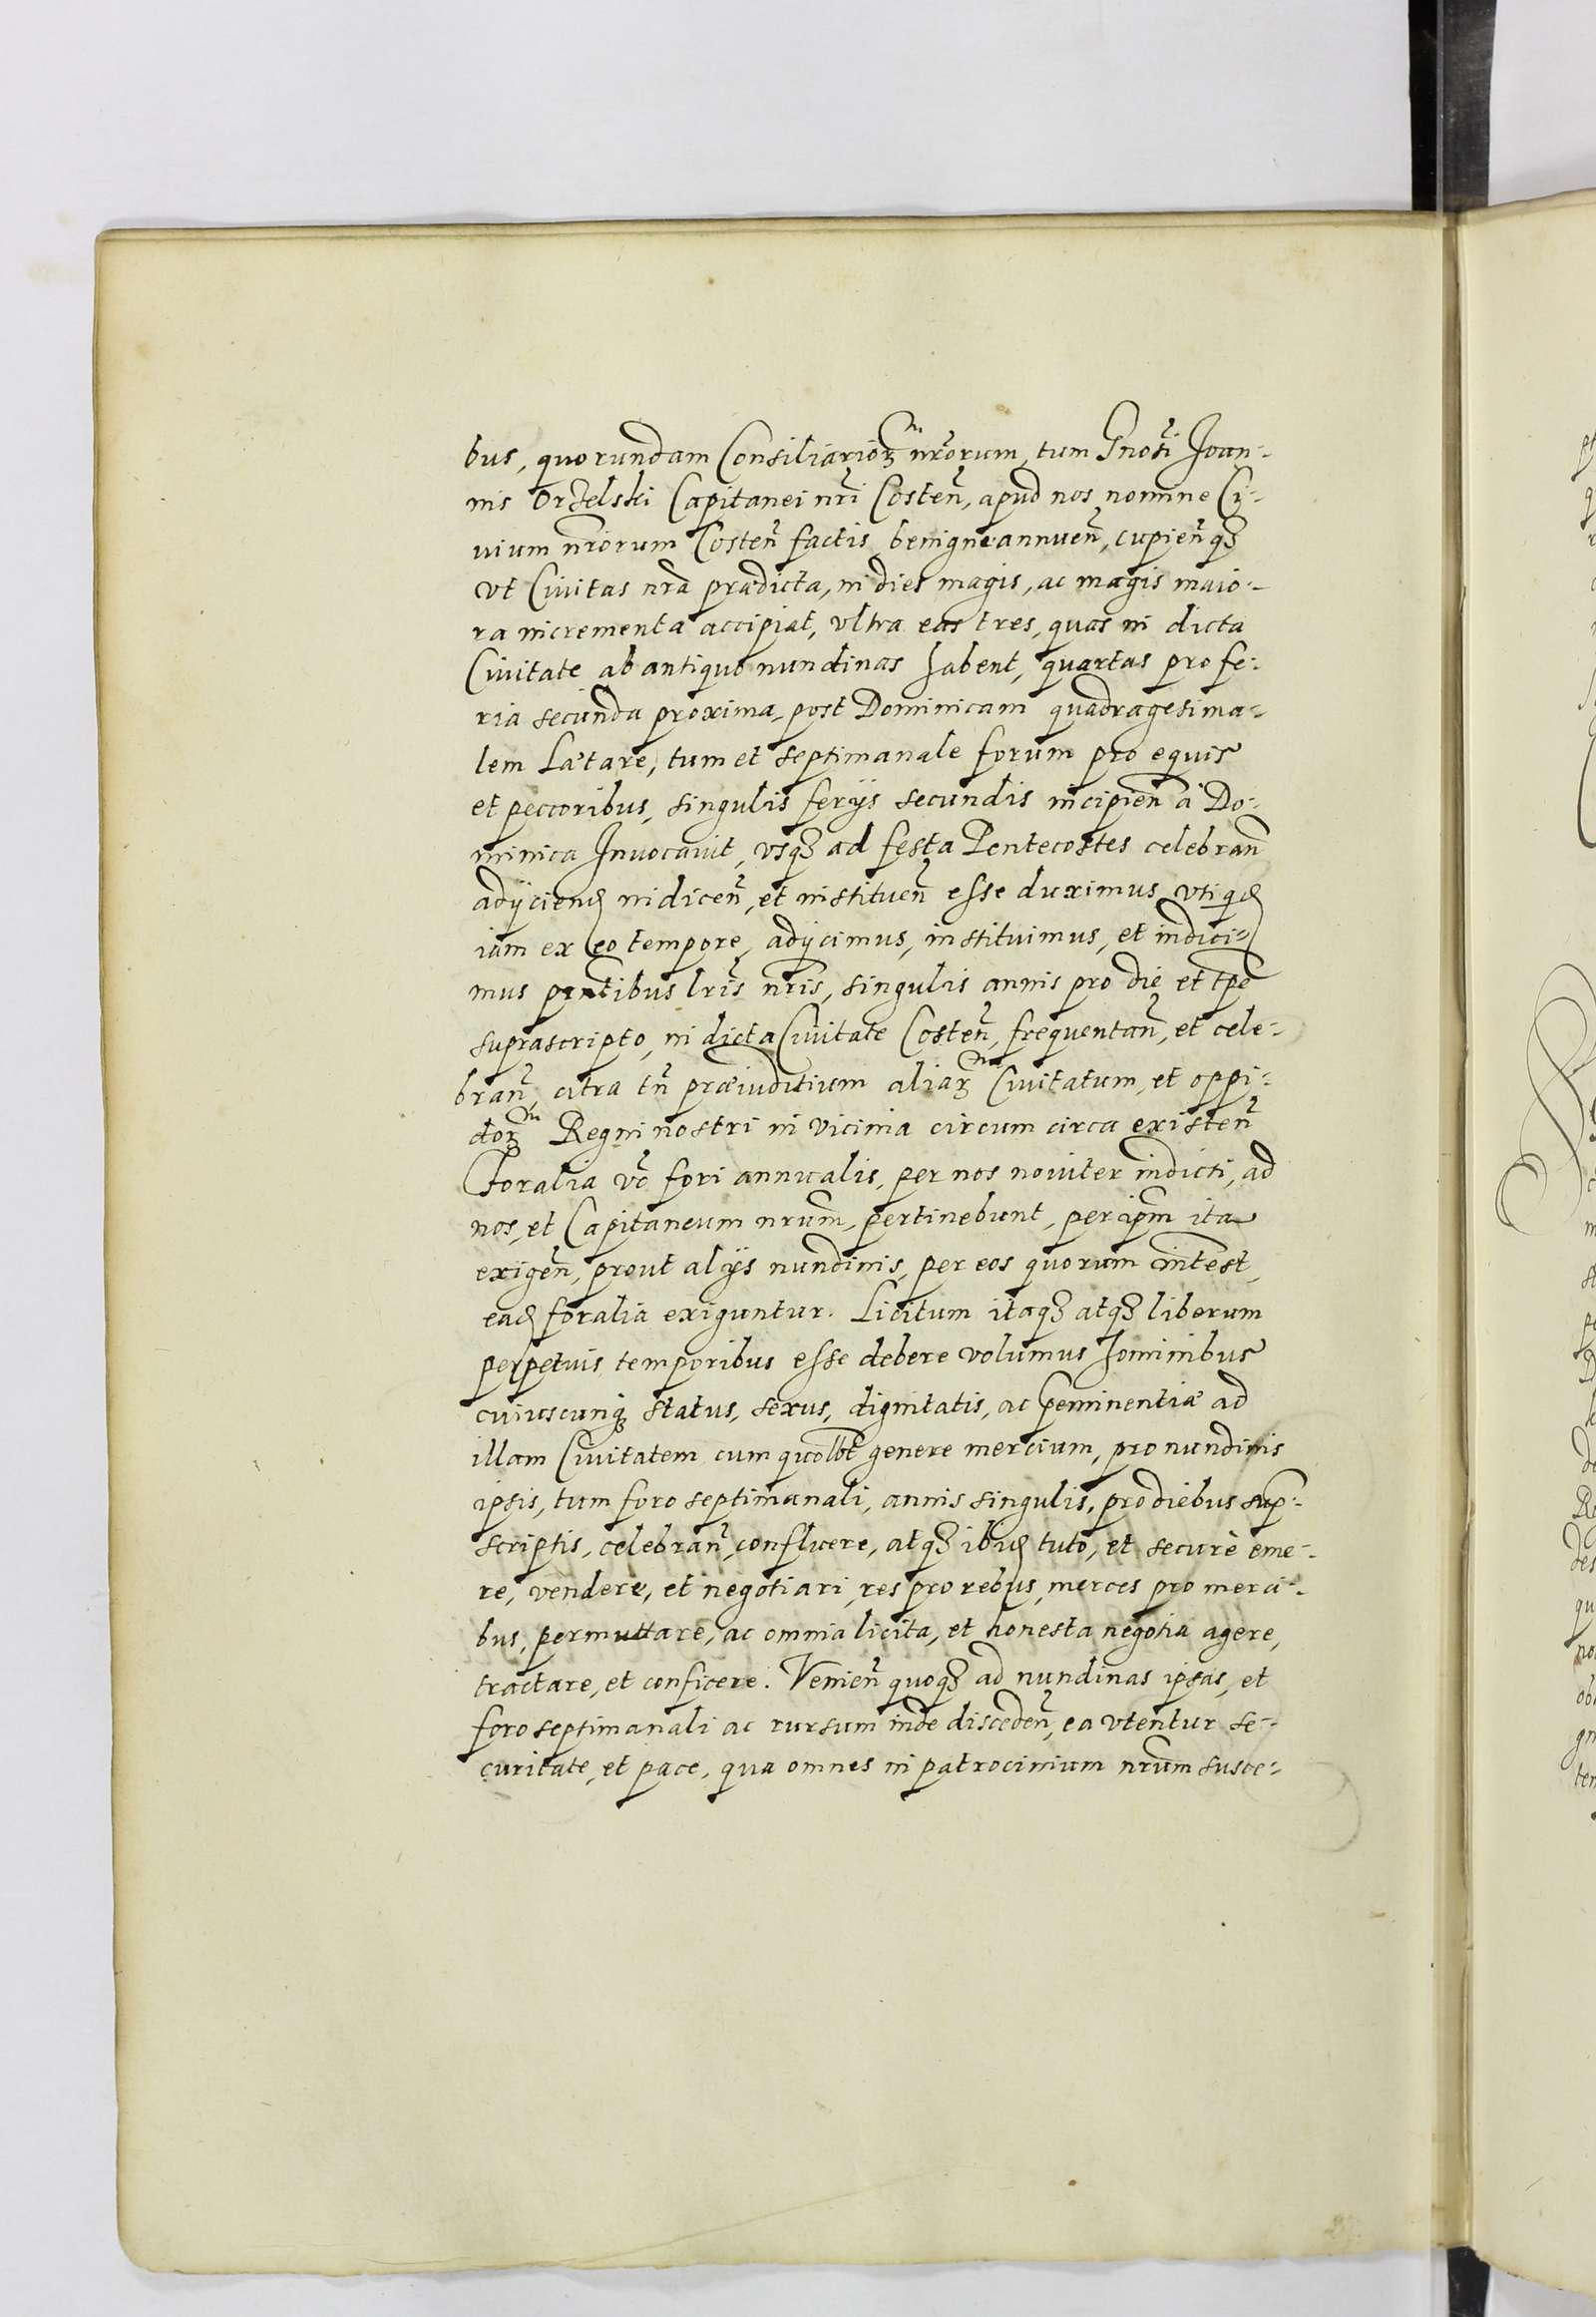 bus, quorundam Consiliarioꝝ nr̃orum, tum Gnosi Joan-
nis Orzelski Capitanei nr̃i Costen̄, apud nos nomine Ci-
uium nr̃orum Costen̄ factis, benigne annuen̄, cupien̄ qꝫ
vt Ciuitas nr̃a prædicta, in dies magis, ac magis maio-
ra incrementa accipiat, vltra eas tres, quas in dicta
Ciuitate ab antiquo nundinas habent, quartas pro fe-
ria secunda proxima, post Dominicam quadragesima-
lem Lætare, tum et septimanale forum pro equis
et peccoribus, singulis ferijs secundis incipien̄ à Do-
minica Inuocauit, vsqꝫ ad festa Pentecostes celebran̄
adijciend indicen̄, et instituen̄ esse duximus, vti qd
iam ex eo tempore, adijcimus, instituimus, et indici-
mus prn̄tibus lr̃is nr̃is, singulis annis pro die et tp̄e
suprascripto, in dicta Ciuitate Costen̄, frequentan̄, et cele-
bran̄, citra tn̄ præiuditium aliaꝝ Ciuitatum, et oppi-
doꝝ Regni nostri in vicinia circum circa existen̄
Foralia vō fori annualis, per nos nouiter indicti, ad
nos, et Capitaneum nr̃um, pertinebunt, per ipm̄ ita
exigen̄, prout alijs nundinis, per eos quorum int̄est,
ead foralia exiguntur. Licitum itaqꝫ atqꝫ liberum
perpetuis temporibus esse debere volumus hominibus
cuiuscunqꝫ status, sexus, dignitatis, ac p̄eminentiæ ad
illam Ciuitatem cum quolbt̄ genere mercium, pro nundinis
ipsis, tum foro septimanali, annis singulis, pro diebus sup̄-
scriptis, celebran̄, confluere, atqꝫ ibid tuto, et securè eme-
re, vendere, et negotiari, res pro rebus, merces pro merci-
bus, permuttare, ac omnia licita, et honesta negotia agere,
tractare, et conficere. Venien̄ quoqꝫ ad nundinas ipsas, et
foro septimanali ac rursum inde disceden̄, ea vtentur se-
curitate, et pace, qua omnes in patrocinium nr̃um susce-